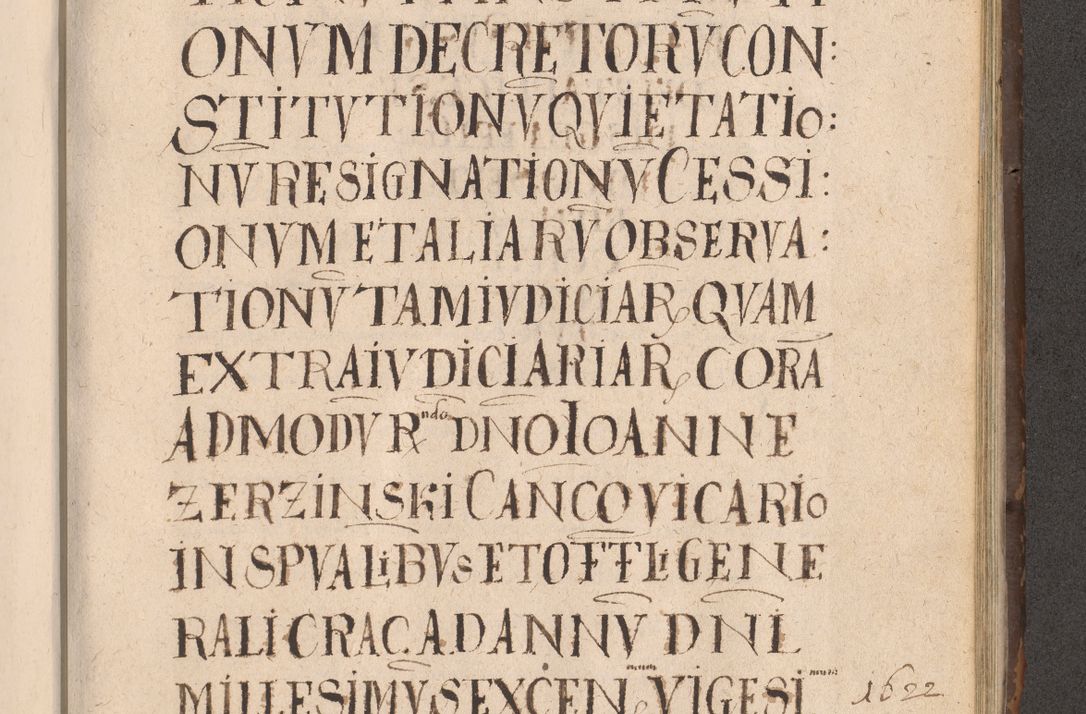 ONVM DECRETORV CON:
STITVTIONV QVIETATIO:
NV RESIGNATIONV CESSI:
ONVM ET ALIARV OBSERVA:
TIONV TAM IVDICIAR QVAM
EXTRAIVDICIARIAR CORA
ADMODV Rndo DNO IOANNE
ZERZINSKI CANCO VICARIO
IN SPVALIBVS ET OFFLI GENE
RALI CRAC. AD ANNV DNI
MILLESIMV SEXCEN VIGESI 1622